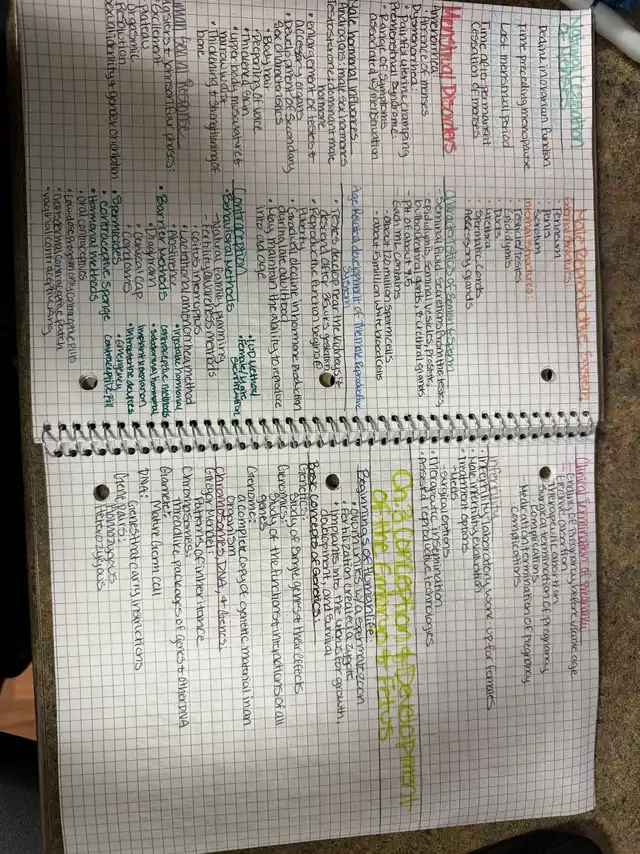 Natural Cessation
of Menses
Decline in ovarian function
Time preceding menopause
Last menstrual period
Time after permanent
cessation of menses
Menstrual Disorders
Amenorrhea:
Absence of menses
Dysmenorrhea:
Painful uterine cramping
Premenstrual Syndrome:
Range of symptoms
associated w/ menstruation
Male hormonal influences
Androgens: male sex hormones
Testosterone: dominant male
hormone
• enlargement of testes &
accessory organs
• Development of secondary
sex characteristics
• Deepening of voice
• Thickened skin
• upper body musculature &
narrow waist
• Thickening & strengthening of
bone
Human Sexual Response
Masters & Johnson four phases:
Excitement
Plateau
Orgasmic
Resolution
Sexual identity & gender orientation
Male Reproductive System
External structures:
• Perineum
• Penis
• Scrotum
Internal structures:
• Testes/testicles
• Epididymis
• Ducts
• Urethra
• Spermatic Cords
• Accessory glands
Characteristics of Semen & Sperm
- Seminal fluid: secretions from the testes,
epididymis, seminal vesicles, prostate,
bulbourethral glands, & urethral glands
- pH of about 7.5
- Each mL contains
• about 120 million sperm cells
• about 5 million white blood cells
Age Related development of the male Reproductive
System
• Testes develop near the kidneys &
descend after 35 weeks gestation
• Reproductive function begins @
Puberty
• Gradual decline in hormone production
during late adulthood
• May maintain the ability to reproduce
into old age
Contraception
• Behavioral methods
- Natural family planning
- Fertility awareness methods
- Coitus interruptus
- Lactational amenorrhea method
- Abstinence
• Barrier methods
• Diaphragm
• Cervical cap
• Condoms
• Spermicides
• Contraceptive sponge
• Hormonal methods
• Oral contraceptives
• Low dose progesterone only contraceptive pills
• Transdermal contraceptive patch
• vaginal contraceptive ring
• IUD method
• Female/Male
sterilization
• Injectable hormonal
contraceptive methods
• Subdermal hormonal
implant contraception
• Intrauterine devices
• Emergency
contraceptive pill
Clinical Termination of pregnancy
- Ending of pregnancy before viable age
- Elective abortion
- Therapeutic abortion
- Surgical termination of pregnancy
- complications
- Medication termination of pregnancy
- Complications
Infertility
• Infertility/laboratory work up for females
• Male infertility evaluation
• Treatment options
• Meds
• surgical options
• Therapeutic insemination
• Assisted reproductive technologies
Ch. 3 Conception & Development
of the Embryo & Fetus
Beginnings of Human life:
• Ovum unites w/ a spermatozoon
• Fertilization creates a zygote
• Implants into the uterus for growth,
development, and survival
Basic Concepts of Genetics:
Genetics:
Study of single genes & their effects
Genomics:
Study of the functions & interactions of all
genes
Genome:
Complete copy of genetic material in an
organism
Chromosomes, DNA, & Genes:
Gregor Mendel
Patterns of inheritance
Chromosomes:
Threadlike packages of genes & other DNA
Gamete:
Mature germ cell
DNA:
Genes that carry instructions
Gene pairs:
Homozygous
Heterozygous